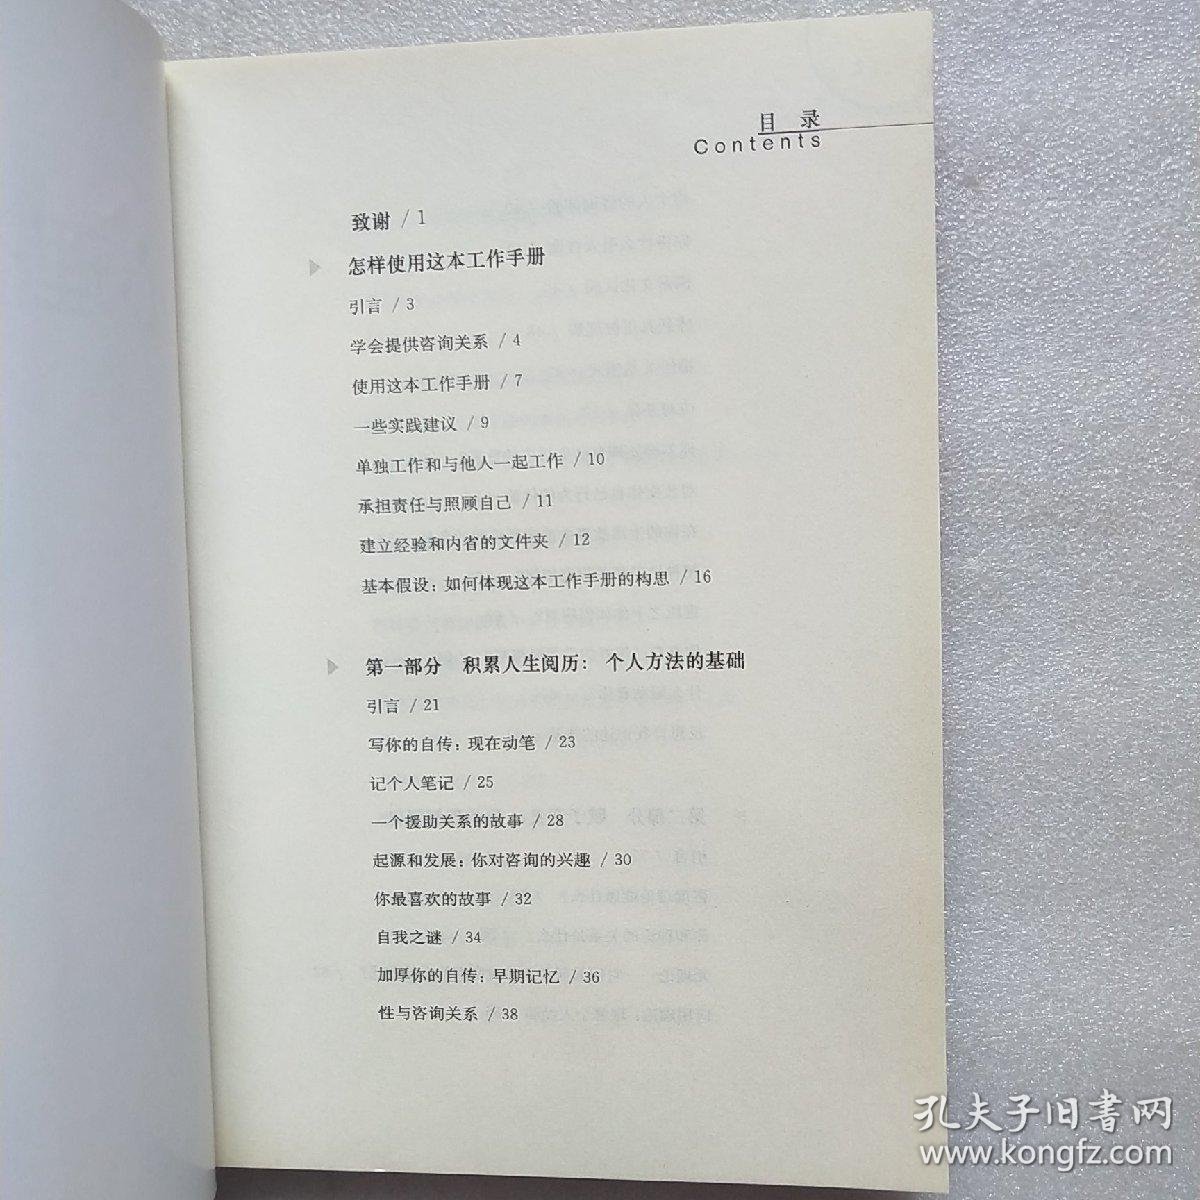 目 录
Contents
致谢 / 1
怎样使用这本工作手册
引言 / 3
学会提供咨询关系 / 4
使用这本工作手册 / 7
一些实践建议 / 9
单独工作和与他人一起工作 / 10
承担责任与照顾自己 / 11
建立经验和内省的文件夹 / 12
基本假设：如何体现这本工作手册的构思 / 16
第一部分 积累人生阅历：个人方法的基础
引言 / 21
写你的自传：现在动笔 / 23
记个人笔记 / 25
一个援助关系的故事 / 28
起源和发展：你对咨询的兴趣 / 30
你最喜欢的故事 / 32
自我之谜 / 34
加厚你的自传：早期记忆 / 36
性与咨询关系 / 38
孔夫子旧書网
www.kongfz.com